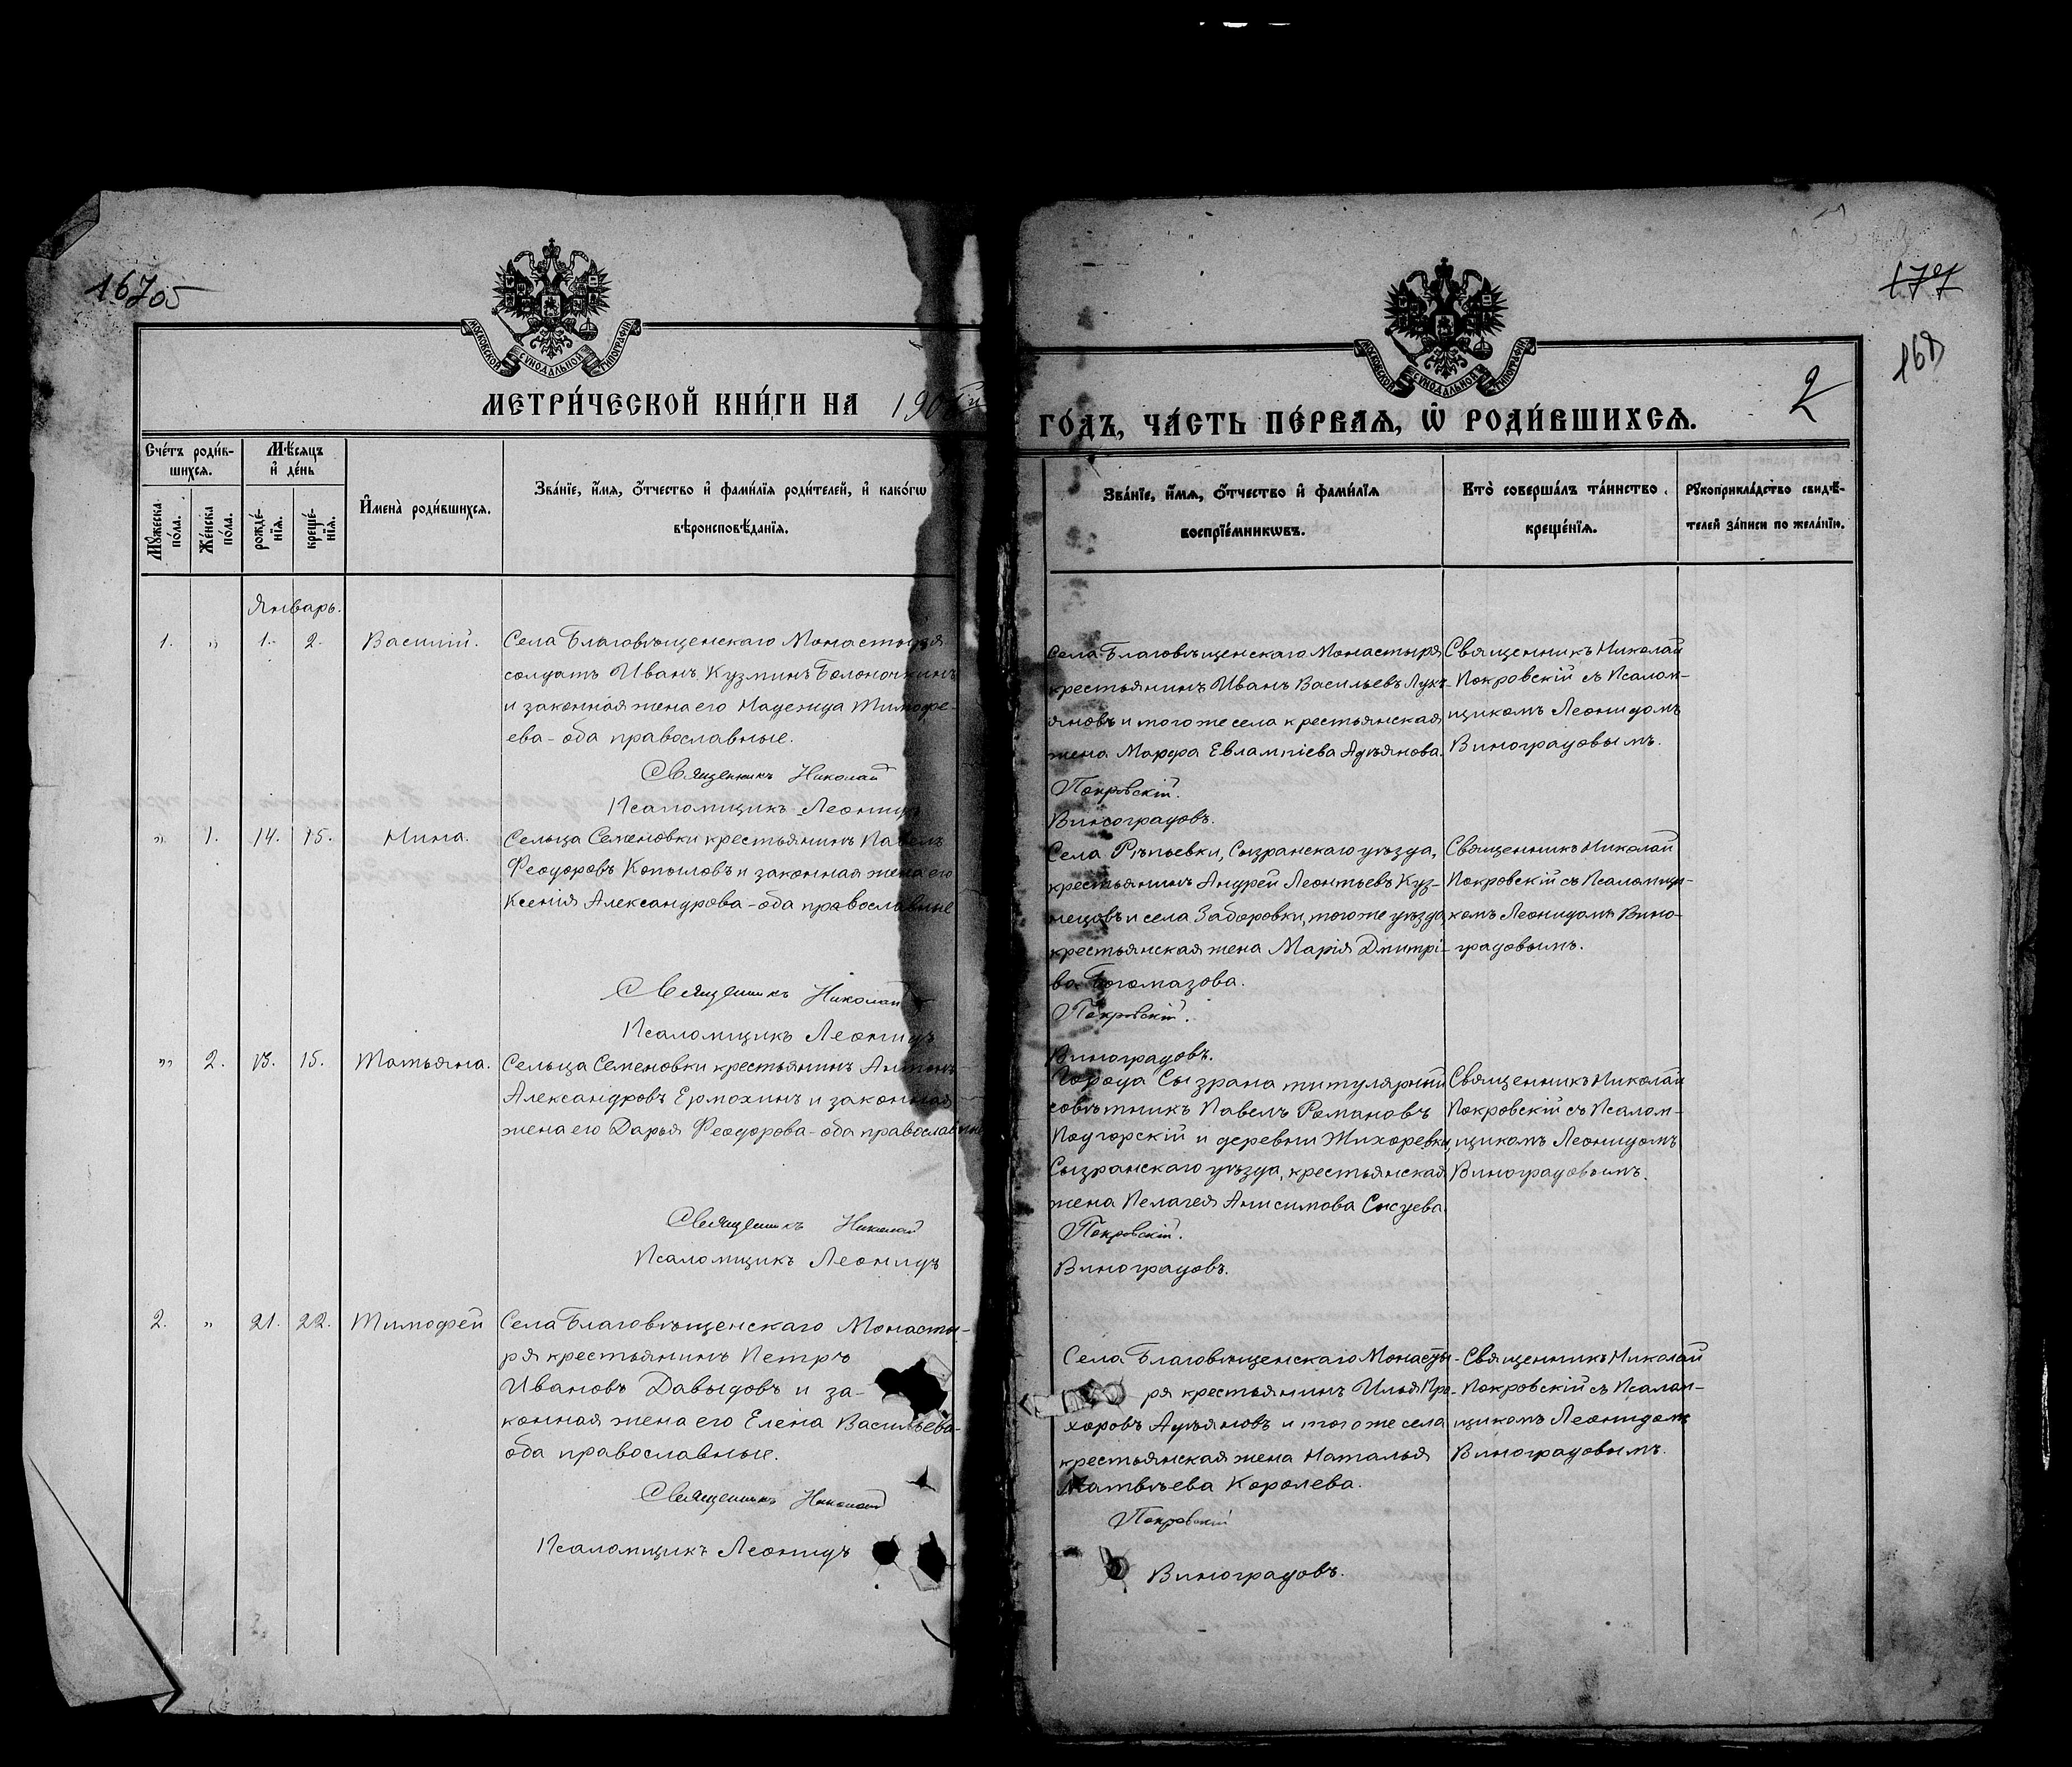 167об
177
168
2
МОСКОВСКОЙ СѴНОДАЛЬНОЙ ТИПОГРАФІИ
МОСКОВСКОЙ СѴНОДАЛЬНОЙ ТИПОГРАФІИ
МЕТРИ́ЧЕСКОЙ КНИ́ГИ НА 190
ГО́ДЪ, ЧА́СТЬ ПЕ́РВАЯ, Ѡ҆ РОДИ́ВШИХСЯ.
Сче́тъ роди́в-
шихся.
Мѣ́сяцъ
и҆ де́нь
Мꙋ́жеска
по́ла.
Же́нска
по́ла.
рожде́-
нїя.
креще́-
нїя.
И҆мена̀ роди́вшихся.
Зва́нїе, и҆́мя, ѻ҆́тчество и҆ фами́лїя роди́телей, и҆ како́гѡ
вѣроисповѣ́данїя.
Зва́нїе, и҆́мя, ѻ҆́тчество и҆ фами́лїя
воспрїе́мникѡвъ.
Кто̀ соверша́лъ та́инство
креще́нїя.
Рꙋкоприкла́дство свидѣ́-
телей за́писи по жела́нїю.
Январь.
1. " 1. 2. Василій.
Села Благовѣщенскаго Монастыря
солдатъ Иванъ Кузминъ Болоночкинъ
и законная жена его Надежда Тимофе-
ева - оба православные.
Священникъ Николай
Псаломщикъ Леонидъ
Села Благовѣщенскаго Монастыря
крестьянинъ Иванъ Васильевъ Лукь-
яновъ и того же села крестьянская
жена Марфа Евлампіева Адѣянова.
Покровскій.
Виноградовъ.
Священникъ Николай
Покровскій съ Псалом-
щикомъ Леонидомъ
Виноградовымъ.
" 1. 14. 15. Нина.
Сельца Семеновки крестьянинъ Павелъ
Феодоровъ Копыловъ и законная жена его
Ксенія Александрова - оба православные
Священникъ Николай
Псаломщикъ Леонидъ
Села Рѣпьевки, Сызранскаго уѣзда,
крестьянинъ Андрей Леонтьевъ Куз-
нецовъ и села Заборовки, того же уѣзда,
крестьянская жена Марія Дмитрі-
ва Богомазова.
Покровскій.
Виноградовъ.
Священникъ Николай
Покровскій съ Псаломщи-
комъ Леонидомъ Вино-
градовымъ.
" 2. 13. 15. Татьяна.
Сельца Семеновки крестьянинъ Антонъ
Александровъ Ермохинъ и законная
жена его Дарья Феодорова - оба православные
Священникъ Николай
Псаломщикъ Леонидъ
Города Сызрана титулярный
совѣтникъ Павелъ Романовъ
Подгорскій и деревни Жихаревки,
Сызранскаго уѣзда, крестьянская
жена Пелагея Анисимова Сысуева.
Покровскій.
Виноградовъ.
Священникъ Николай
Покровскій съ Псалом-
щикомъ Леонидомъ
Виноградовымъ.
2. " 21. 22. Тимофей
Села Благовѣщенскаго Монасты-
ря крестьянинъ Петръ
Ивановъ Давыдовъ и за-
конная жена его Елена Васильева-
оба православные.
Священникъ Николай
Псаломщикъ Леонидъ
Села Благовѣщенскаго Монасты-
ря крестьянинъ Илья Про-
хоровъ Адѣяновъ и того же села
крестьянская жена Наталья
Матвѣева Королева.
Покровскій
Виноградовъ.
Священникъ Николай
Покровскій съ Псалом-
щикомъ Леонидомъ
Виноградовымъ.